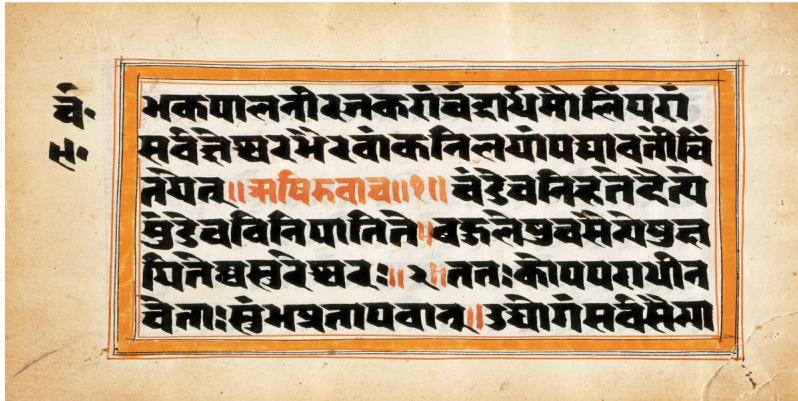 भकपालनीरजकरांचंद्रार्धमौलिंपरां
सर्वज्ञेश्वरभैरवांकनिलयांपद्मावतींचिं
तयेत्॥ऋषिरुवाच॥१॥चंडेचनिहतेदैत्ये
मुंडेचविनिपातिते॥बहुलेषुचसैन्येषुक्ष
यितेष्वसुरेश्वरः॥२॥ततःकोपपराधीन
चेताःशुंभप्रतापवान्॥उद्योगंसर्वसैन्या